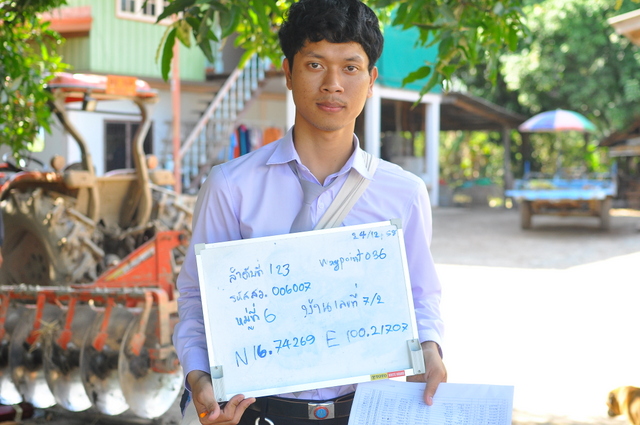 24/12/57
ลำดับที่ 123 waypoint 036
รหัส สว. 006007
หมู่ที่ 6 บ้านเลขที่ 7/2
N 16.74269 E 100.21707